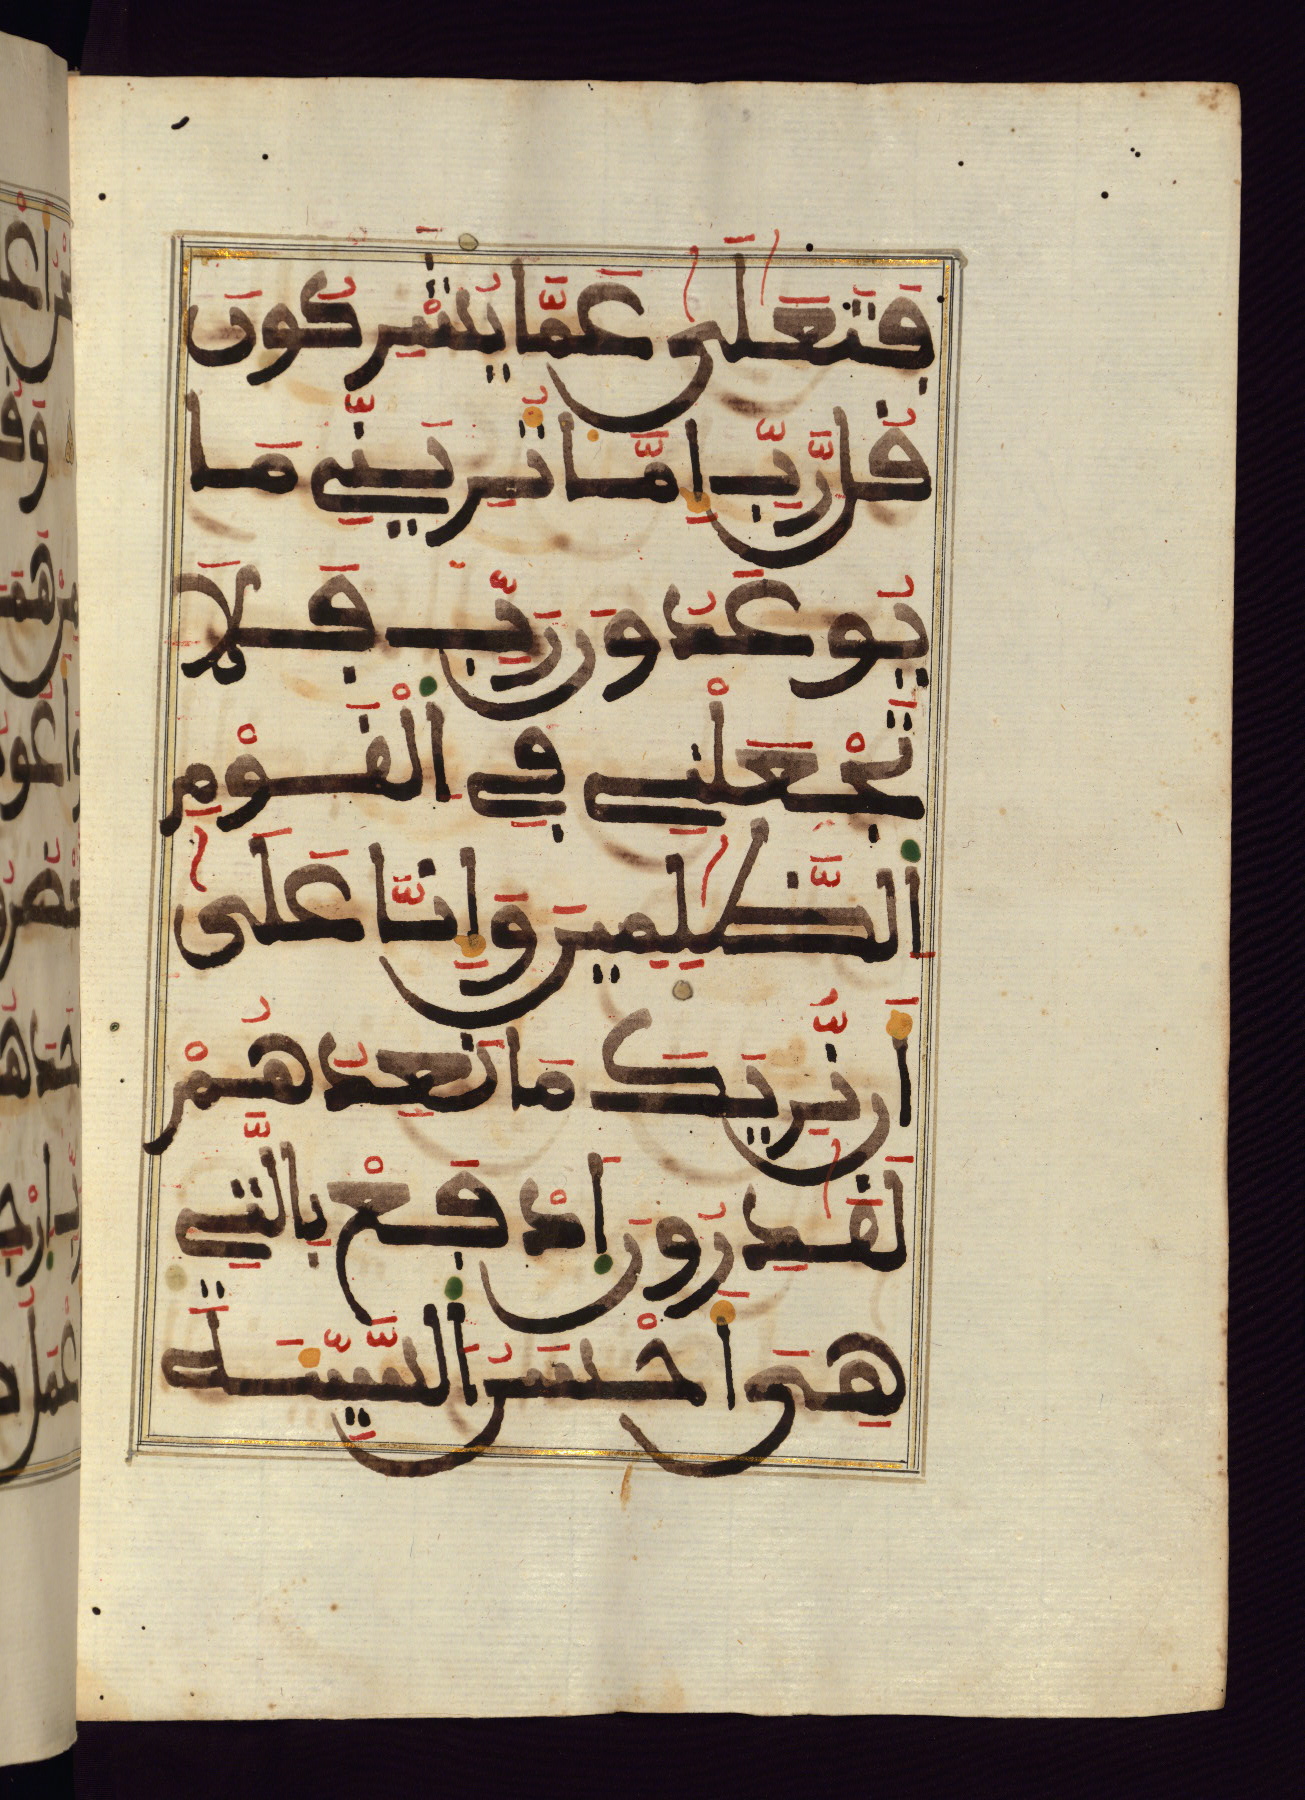 فَتَعَٰلَىٰ عَمَّا يُشْرِكُونَ
قُل رَّبِّ إِمَّا تُرِيَنِّي مَا
يُوعَدُونَ رَبِّ فَلَا
تَجْعَلْنِي فِي الْقَوْمِ
الظَّٰلِمِينَ وَإِنَّا عَلَىٰ
أَن نُّرِيَكَ مَا نَعِدُهُمْ
لَقَٰدِرُونَ ادْفَعْ بِالَّتِي
هِيَ أَحْسَنُ السَّيِّئَةَ